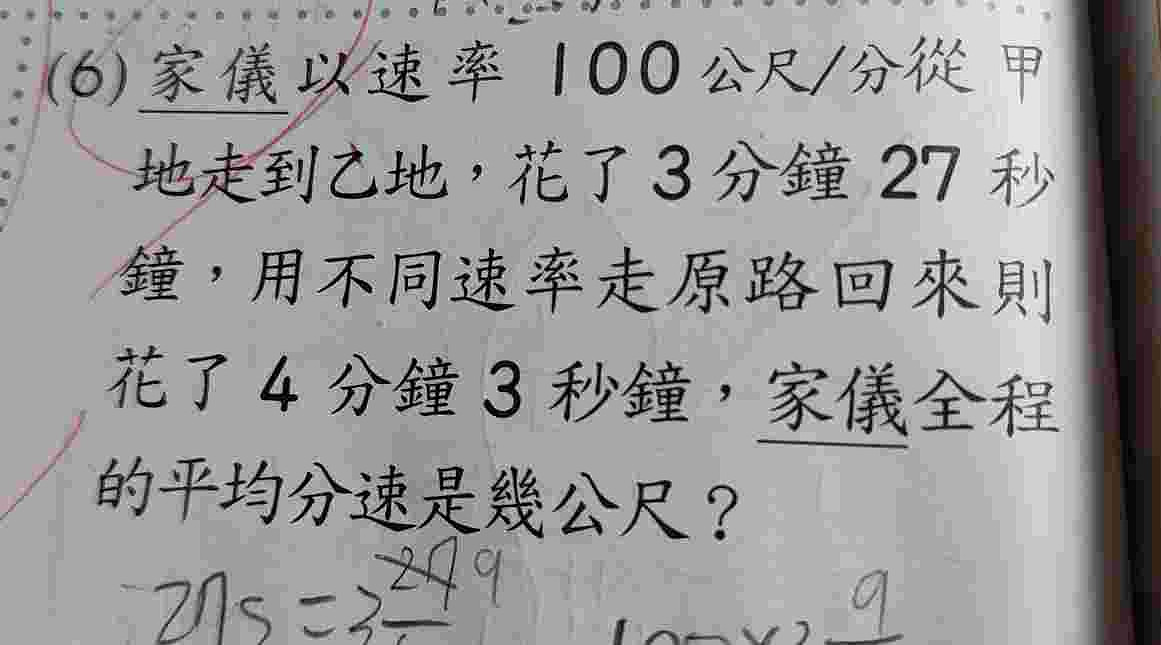 (6) 家儀以速率 100 公尺/分從甲
地走到乙地，花了 3 分鐘 27 秒
鐘，用不同速率走原路回來則
花了 4 分鐘 3 秒鐘，家儀全程
的平均分速是幾公尺？
27s = 3 27 9
9